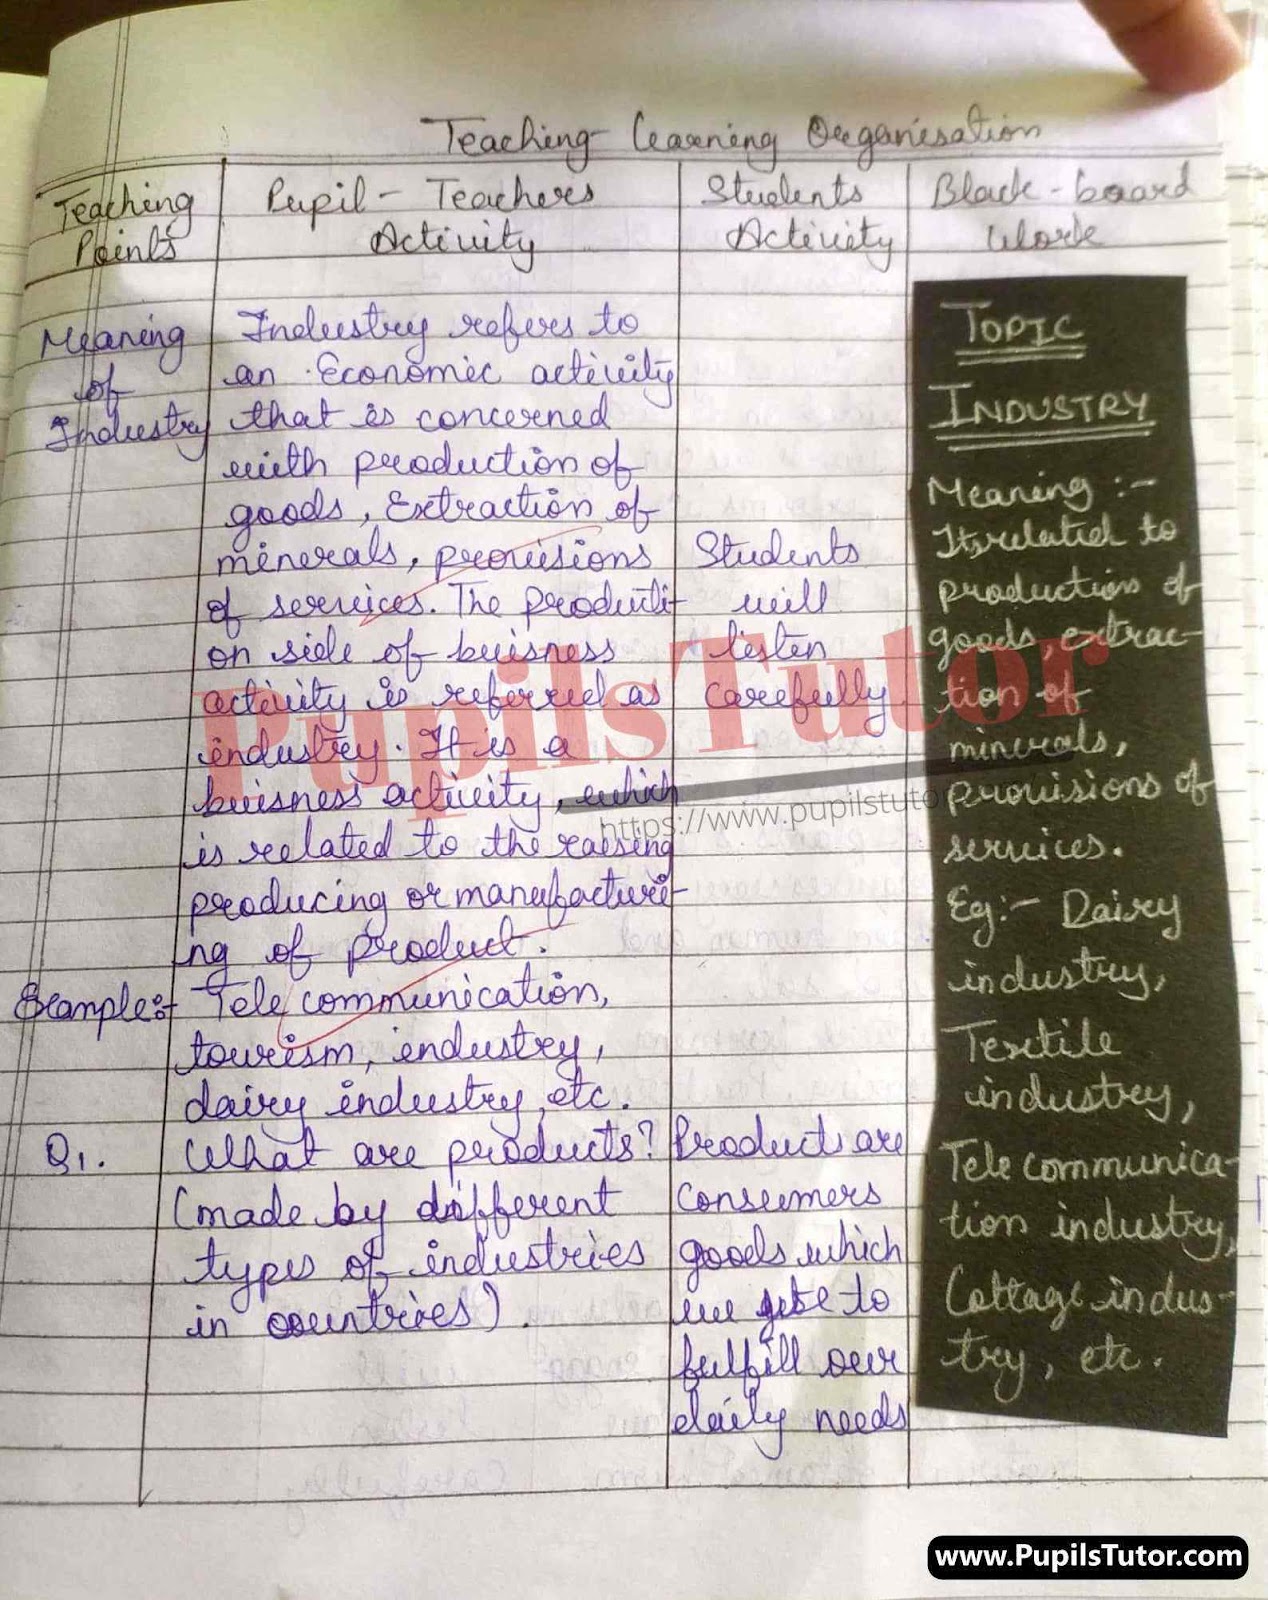 Teaching Learning Organisation
Teaching
Points
Pupil - Teachers
Activity
Students
Activity
Black-board
Work
Meaning
of
Industry
Industry refers to
an Economic activity
that is concerned
with production of
goods, Extraction of
minerals, provisions
of services. The producti-
on side of buisness
activity is referred as
industry. It is a
buisness activity, which
is related to the raising
producing or manufacturi-
ng of product.
Students
will
listen
carefully
Example:-
Tele communication,
tourism, industry,
dairy industry, etc.
Q1.
What are products?
(made by different
types of industries
in countries).
Products are
Consumers
goods which
we use to
fulfill our
daily needs
TOPIC
INDUSTRY
Meaning :-
Its related to
production of
goods, extrac-
tion of
minerals,
provisions of
services.
Eg:- Dairy
industry,
Textile
industry,
Tele communica-
tion industry,
Cottage indus-
try, etc.
PupilsTutor
https://www.pupilstutor
www.PupilsTutor.com